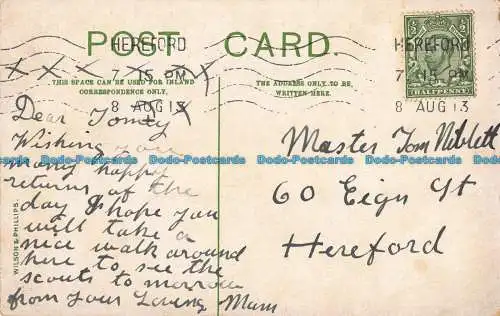 POST CARD.
THIS SPACE CAN BE USED FOR INLAND
CORRESPONDENCE ONLY.
THE ADDRESS ONLY TO BE
WRITTEN HERE.
HEREFORD
15 PM
8 AUG 13
HEREFORD
7 15 PM
8 AUG 13
HALFPENNY
Dear Tomey
Wishing you
many happy
returns of the
day I hope you
will take a
nice walk around
here to see the
scouts to morrow
from your Loving Mum
Master Tom Niblett
60 Eign St
Hereford
WILSON & PHILLIPS.
Bado-Postcards Bado-Postcards Bado-Postcards Bado-Postcards
Bado-Postcards Bado-Postcards Bado-Postcards Bado-Postcards